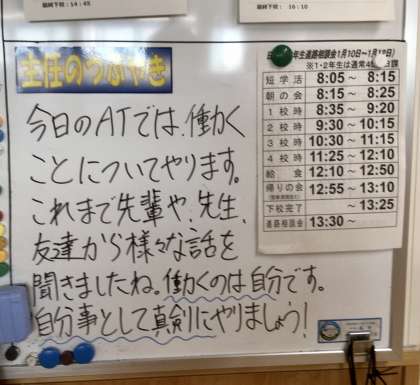 最終下校：14：45
最終下校：16：10
主任のつぶやき
今日のATでは、働く
ことについてやります。
これまで先輩や、先生、
友達から様々な話を
聞きましたね。働くのは自分です。
自分事として真剣にやりましょう！
年生進路相談会1月10日～1月
※1・2年生は通常45
短学活 8:05～ 8:15
朝の会 8:15～ 8:25
1校時 8:35～ 9:20
2校時 9:30～10:15
3校時 10:30～11:15
4校時 11:25～12:10
給食 12:10～12:50
帰りの会 12:55～13:10
下校完了 ～13:25
進路相談会 13:30～